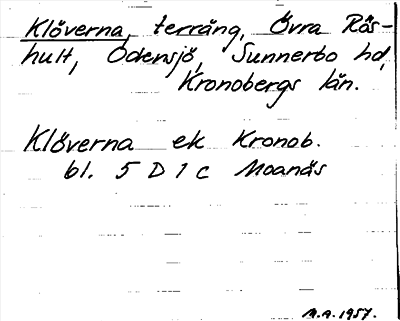 Klöverna, terräng, Övra Rås-
hult, Odensjö, Sunnerbo hd,
Kronobergs län.
Klöverna ek Kronob.
bl. 5 D 1 c Moanäs
M.A. 1957.